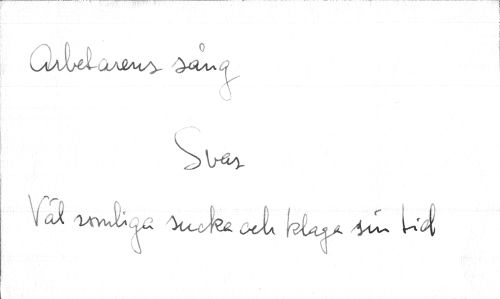 Arbetarens sång
Svar
Väl somliga sucka och klaga sin tid